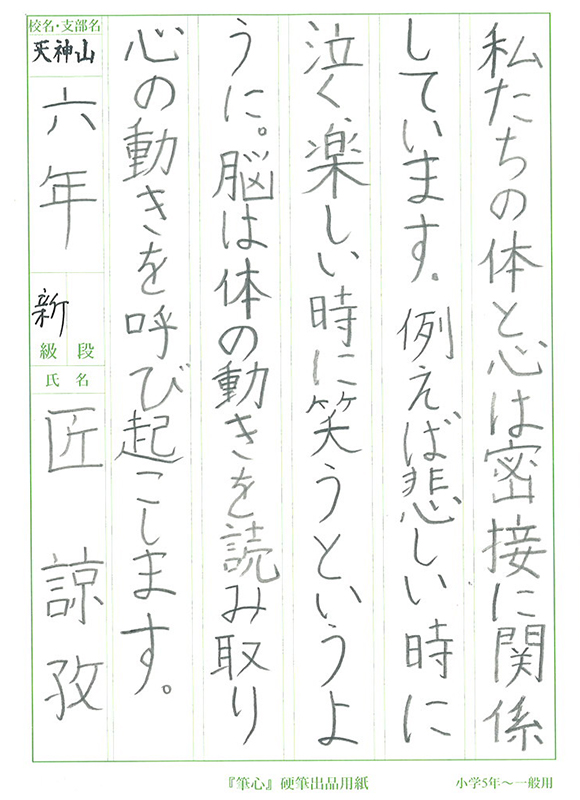 私たちの体と心は密接に関係
しています。例えば悲しい時に
泣く、楽しい時に笑うというよ
うに。脳は体の動きを読み取り
心の動きを呼び起こします。
校名・支部名
天神山
六年
新
級 段
氏名
匠 諒孜
『筆心』硬筆出品用紙
小学5年〜一般用